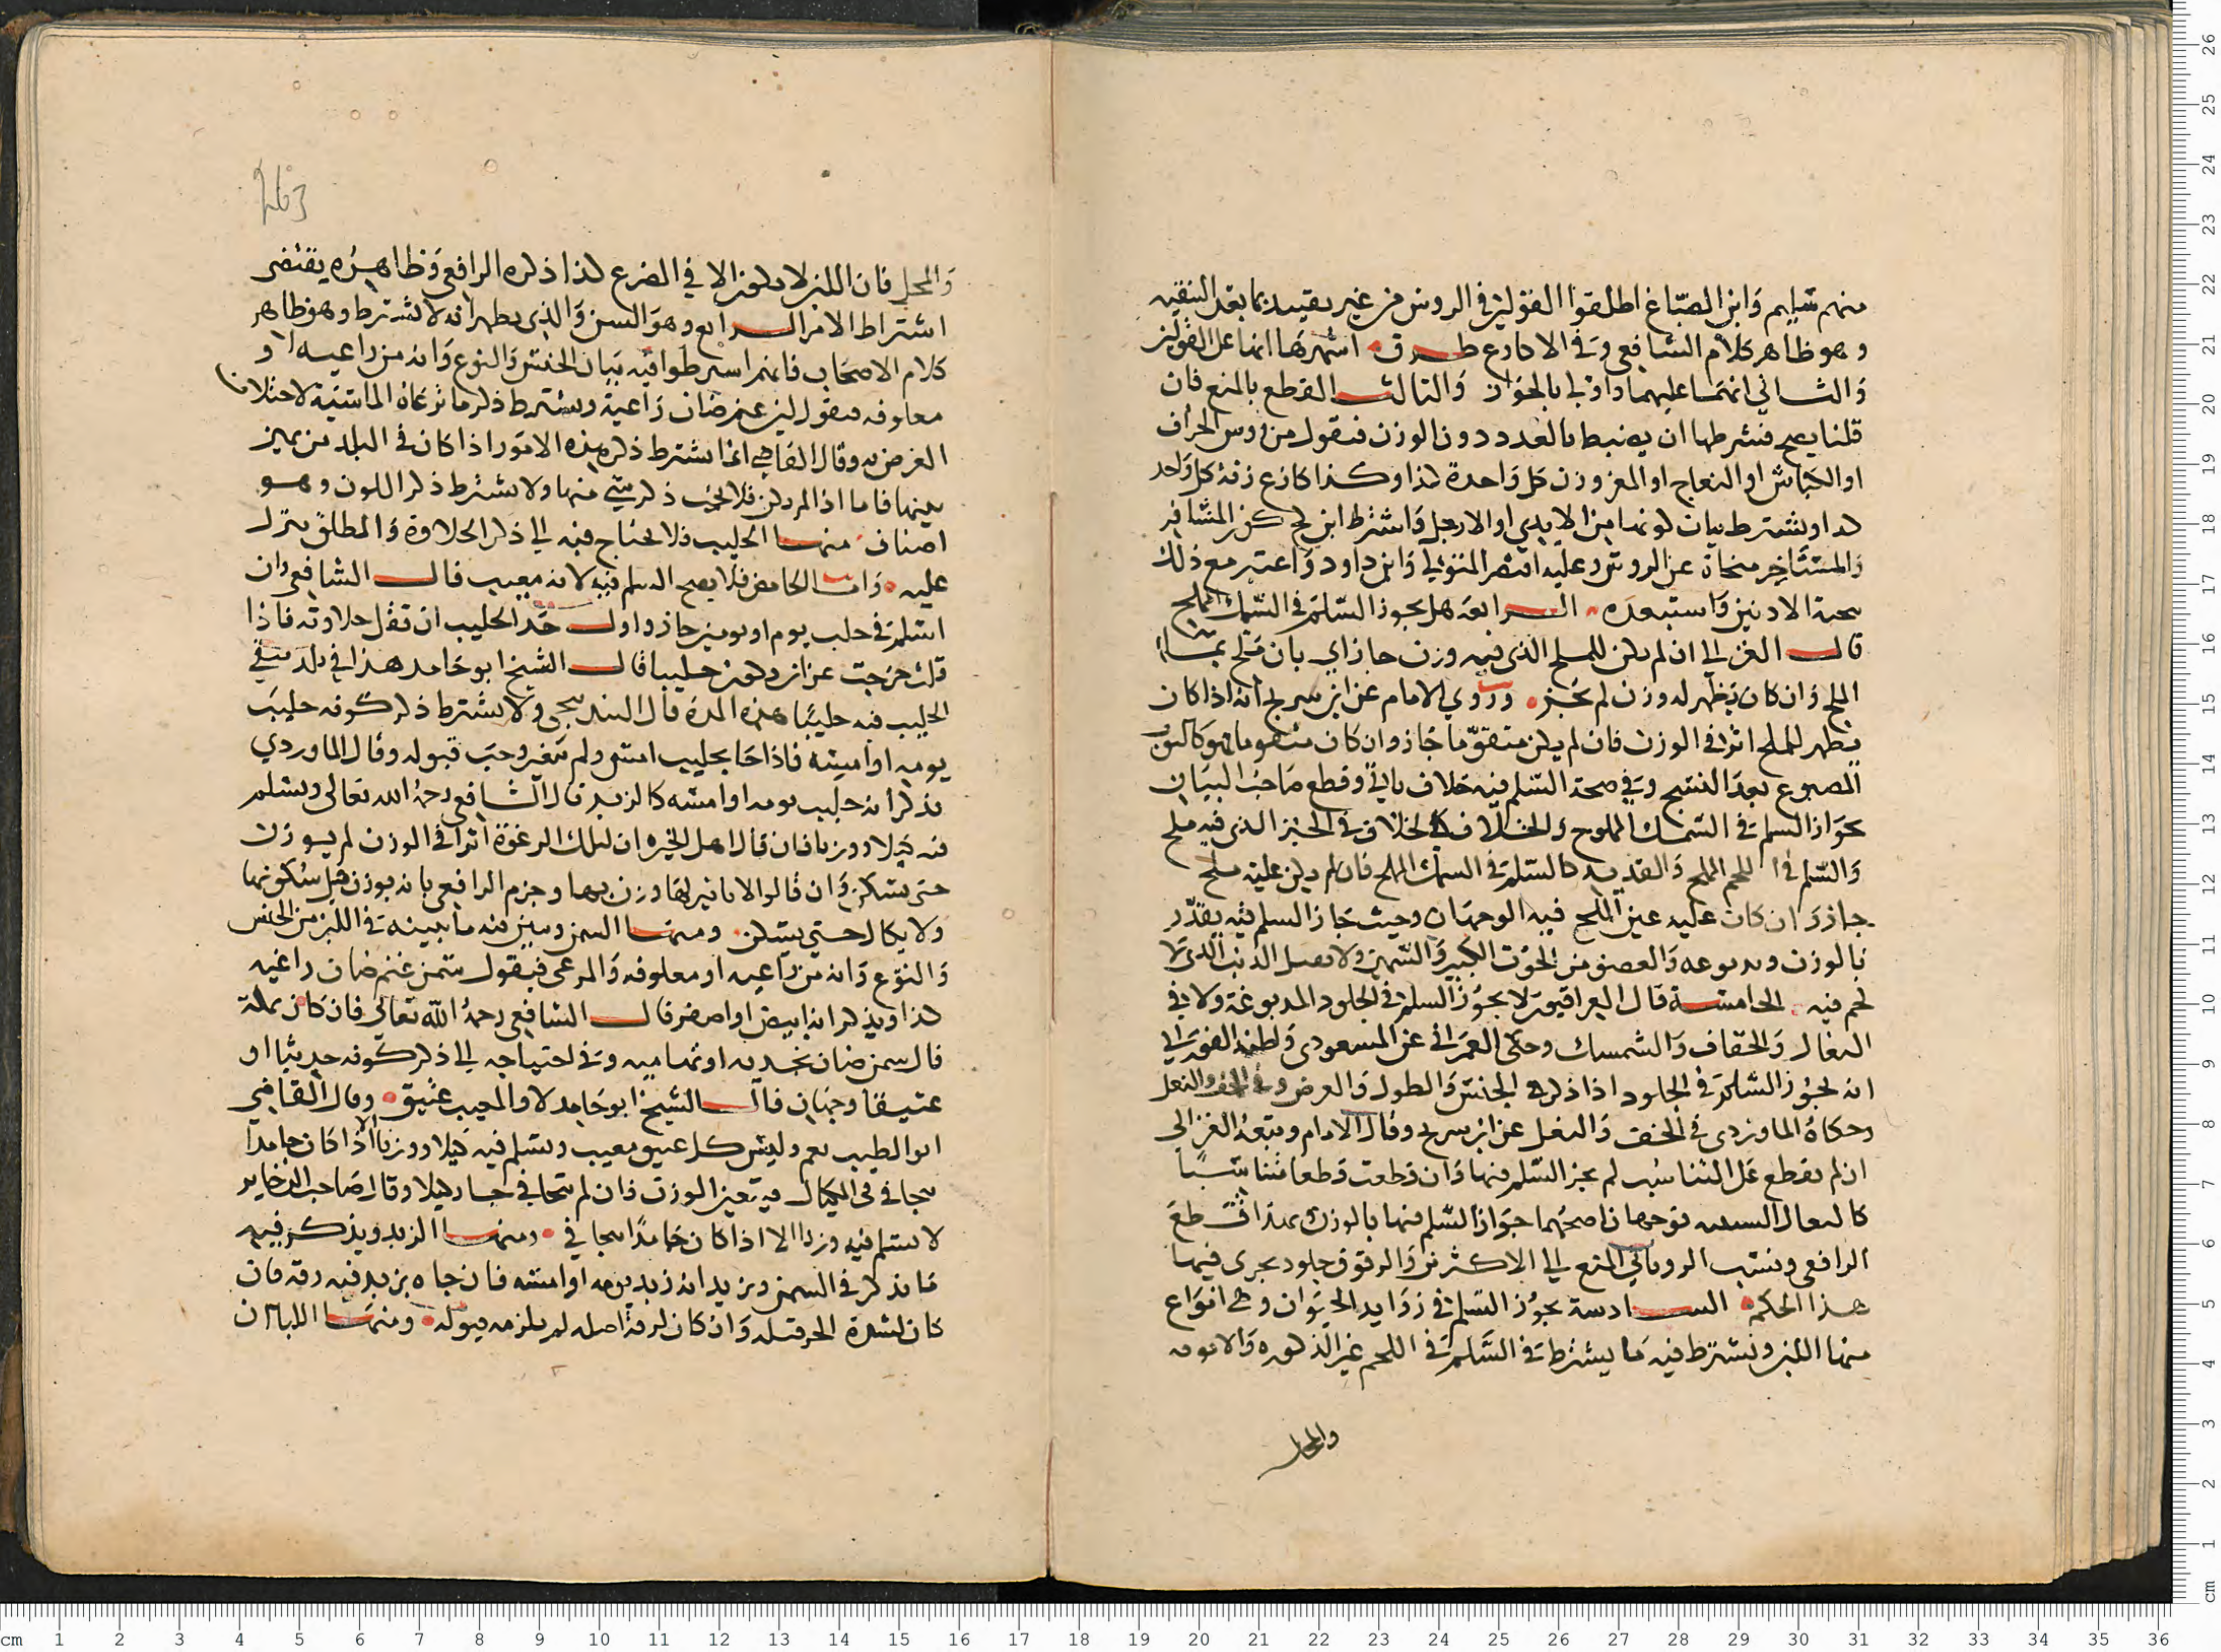 منهم سليم وابن الصباغ اطلقوا القولين في الروس من غير تقييد بما بعد التنقيه
وهو ظاهر كلام الشافعي وفي الاكارع طرق اشهرها انها على القولين
والثاني انهما عليهما واولى بالجواز والثالث القطع بالمنع فان
قلنا يصح فشرطها ان يضبط بالعدد دون الوزن فيقول من روس الخراف
او الكباش او النعاج او المعز وزن كل واحدة كذا وكذا كارع زنة كل واحد
كذا ويشترط بيان كونها من الايدي او الارجل واشترط ابن كج كون المشافر
والمستاخر منحاة عن الروس وعليه اقتصر المتولي وابن داود واعتبر مع ذلك
صحة الاذنين واستبعده الرابعة هل يجوز السلم في السمك المملح
قال الغزالي ان لم يكن للملح الذي فيه وزن جاز اي بان ملح بماء
الملح وان كان يظهر له وزن لم يجز وروي الامام عن ابن سريج انه اذا كان
يظهر للملح اثرا في الوزن فان لم يكن متقوما جاز وان كان متقوما فهو كالثوب
المصبوغ بعد النسج وفي صحة السلم فيه خلاف ياتي وقطع صاحب البيان
بجواز السلم في السمك المملوح والخلاف كالخلاف في الخبز الذي فيه ملح
والسلم في اللحم المملح والقديد كالسلم في السمك المملح فان لم يكن عليه ملح
جاز وان كان عليه عين الملح فيه الوجهان وحيث جاز السلم فيه يقدر
بالوزن و والعضو من الحوت الكبير والسمين ولا الذنب الذي لا
لحم فيه الخامسة قال العراقيون لا يجوز السلم في الجلود المدبوغة ولا في
النعال والخفاف والشمسك وحكى العمراني عن المسعودي ولطنه الفوراني
انه يجوز السلم في الجلود اذا ذكر الجنس والطول والعرض وفي الخف والنعل
وحكاه الماوردي في الخف والنعل عن ابن سريج وقال الامام وتبعه الغزالي
ان لم يقطع على التناسب لم يجز السلم فيها وان قطعت قطعا متناسبا
كالنعال السبتيه فوجهان اصحهما جواز السلم فيها بالوزن بهذا قطع
الرافعي ونسب الروياني المنع الى الاكثرين والرقوق جلود يجري فيها
هذا الحكم السادسة يجوز السلم في زوايد الحيوان وهي انواع
منها اللبن ويشترط فيه ما يشترط في السلم في اللحم غير الذكوره والانوثه
والمحل
263
والمحل فان اللبن لا يكون الا في الضرع كذا ذكره الرافعي وظاهره يقتضي
اشتراط الامر الرابع وهو السن والذي يظهر انه لا يشترط وهو ظاهر
كلام الاصحاب فانهم اشترطوا فيه بيان الجنس والنوع وانه من راعيه او
معلوفه فيقول لبن غنم ضان راعية ويشترط ذكر ما ترعاه الماشية لاختلاف
الغرض به وقال القاضي انما يشترط ذكر هذه الامور اذا كان في البلد من يميز
بينها فاما اذا لم يكن فلا يجب ذكر شي منها ولا يشترط ذكر اللون وهو
اصناف منها الحليب فلا يحتاج فيه الى ذكر الحلاوة والمطلق ينزل
عليه واما الحامض فلا يصح السلم فيه لانه معيب قال الشافعي وان
اسلم في حلب يوم او يومين جاز واول حد الحليب ان تقل حلاوته فاذا
قلت خرجت عن ان يكون حليبا قال الشيخ ابو حامد هذا في بلد يبقى
الحليب فيه حليبا هذه المدة قال البندنيجي ولا يشترط ذكر كونه حليب
يومه او امسه فاذا جا بحليب امس ولم يتغير وجب قبوله وقال الماوردي
يذكر انه حليب يومه او امسه كالزبد قال الشافعي رحمه الله تعالى ويسلم
فيه كيلا ووزنا فان قال اهل الخبره ان لتلك الرغوة اثرا في الوزن لم يوزن
حتى يسكن وان قالوا لا تاثير لها وزن بها وجزم الرافعي بانه يوزن قبل سكونها
ولا يكال حتى يسكن ومنها السمن ويبين فيه ما يبينه في اللبن من الجنس
والنوع وانه من راعيه او معلوفه والمرعى فيقول سمن غنم ضان راعيه
كذا ويذكر انه ابيض او اصفر قال الشافعي رحمه الله تعالى فان كان بمكة
قال سمن ضان نجديه او تهاميه وفي احتياجه الى ذكر كونه حديثا او
عتيقا وجهان قال الشيخ ابو حامد لا والمعيب عتيق وقال القاضي
ابو الطيب نعم وليس كل عتيق معيب ويسلم فيه كيلا ووزنا الا اذا كان جامدا
يتجافى في المكيال فيتعين الوزن فان لم يتجافى جاز كيلا وقال صاحب الذخاير
لا يسلم فيه وزنا الا اذا كان جامدا يتجافى ومنها الزبد ويذكر فيه
ما يذكر في السمن ويزيد انه زبد يومه او امسه فان جاه بزبد فيه رقة فان
كان لشدة الحر قبله وان كان لرقة اصله لم يلزمه قبوله ومنها اللبا ان